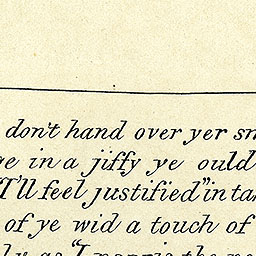 don't hand over yer sn
ge in a jiffy ye ould
"I'll feel justified" in ta
of ye wid a touch of